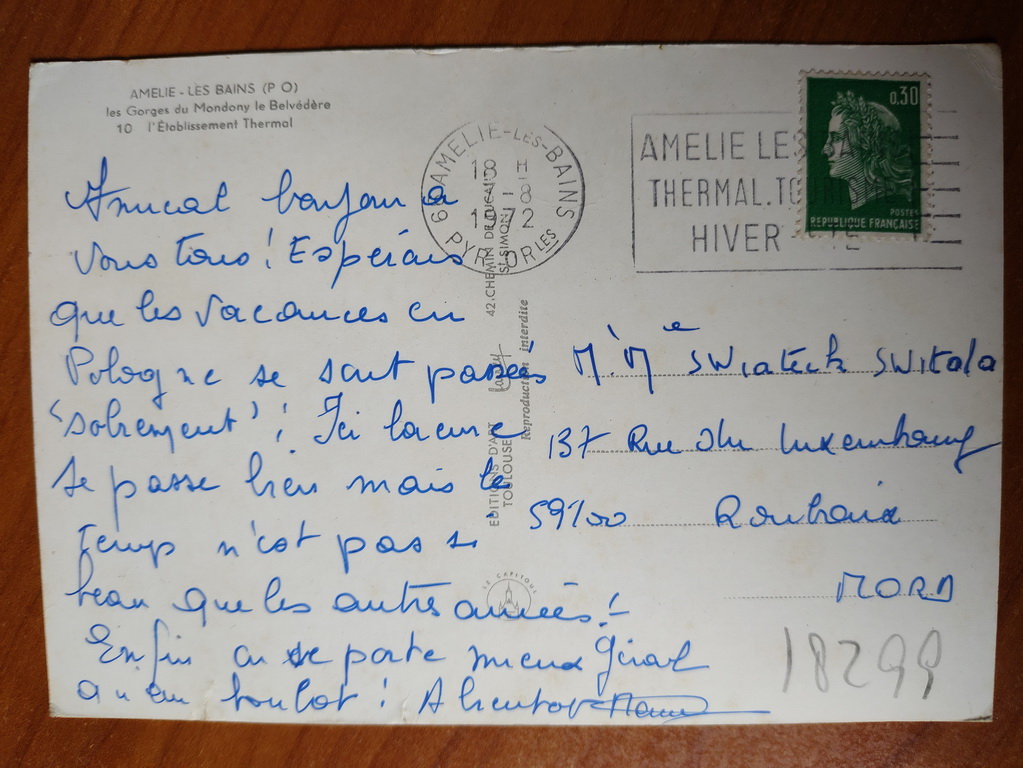 AMELIE - LES BAINS (P O)
les Gorges du Mondony le Belvédère
10 l'Etablissement Thermal
Amical bonjour a
vous tous ! Espérais
que les vacances en
Pologne se sont passées
"sobrement" ! Ici la cure
se passe bien mais le
temps n'est pas si
beau que les autres années !
Enfin on se porte mieux
qu'au boulot ! A bientot
66 AMELIE-LES-BAINS
18 H
-8
1972
PYR. ORLES
AMELIE LES
THERMAL.TO
HIVER - ETE
0.30
POSTES
REPUBLIQUE FRANCAISE
M. Me SWIATECK SWITALA
137 Rue du Luxembourg
59100 Roubaix
NORD
18299
EDITIONS D'ART
TOULOUSE
42.CHEMIN DE
St SIMON
Reproduction interdite
LE CAPITOUL